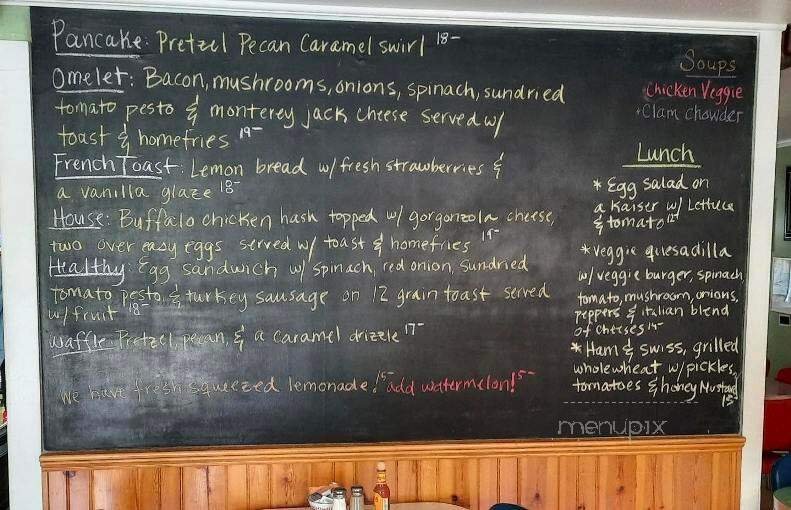 Pancake: Pretzel Pecan Caramel swirl 18-
Omelet: Bacon, mushrooms, onions, spinach, sundried
tomato pesto & monterey jack cheese served w/
toast & homefries 19-
French Toast: Lemon bread w/ fresh strawberries &
a vanilla glaze 18-
House: Buffalo chicken hash topped w/ gorgonzola cheese,
two over easy eggs served w/ toast & homefries 19-
Healthy: Egg sandwich w/ spinach, red onion, sundried
tomato pesto & turkey sausage on 12 grain toast served
w/ fruit 18-
Waffle: Pretzel, pecan, & a caramel drizzle 17-
We have fresh squeezed lemonade! 5- add watermelon! 5-
Soups
Chicken Veggie
Clam chowder
Lunch
* Egg salad on
a Kaiser w/ Lettuce
& tomato
* veggie quesadilla
w/ veggie burger, spinach,
tomato, mushroom, onions,
peppers & italian blend
of cheeses 14-
* Ham & swiss, grilled
wholewheat w/ pickles,
tomatoes & honey Mustard
15-
menupix